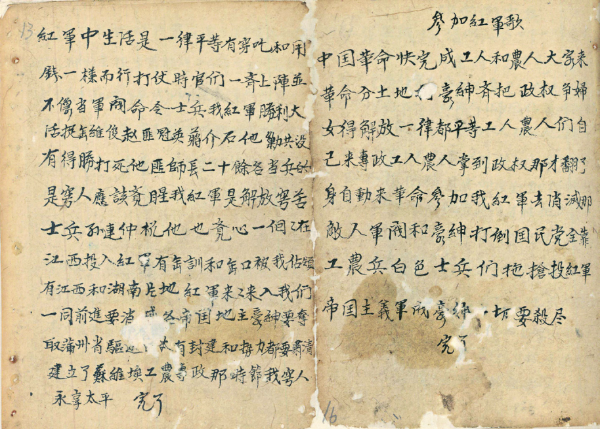 13
紅軍中生活是一律平等有穿吃和用
錢一樣而行打伏時官们一齊上陣並
不像当軍阀命令士兵我紅軍勝利大
活捉 維俊赵匪冠英蔣介石他勦共没
有得勝打死他匪師長二十餘名当兵的
是窮人應該竟醒我紅軍是解放窮苦
士兵孙連仲 他也竟心一個 在
江西投入紅軍有 訓和 口被我佔領
有江西和湖南 地紅軍来 来入我们
一同前進要消 帝国地主豪紳要奪
取滿州省驅逐 有封建和 力都要肃清
建立了蘇維埃工農專政那時節我窮人
永享太平 完了
參加紅軍歌
中国革命快完成工人和農人大家来
革命分土地 豪紳齐把政权爭婦
女得解放一律都平等工人農人们自
己来專政工人農人掌到政权那才翻了
身自動来革命參加我紅軍去消滅那
敵人軍阀和豪紳打倒国民党全靠
工農兵白色士兵们拖搶投紅軍
帝国主義軍阀豪紳一切要殺尽
完了
16